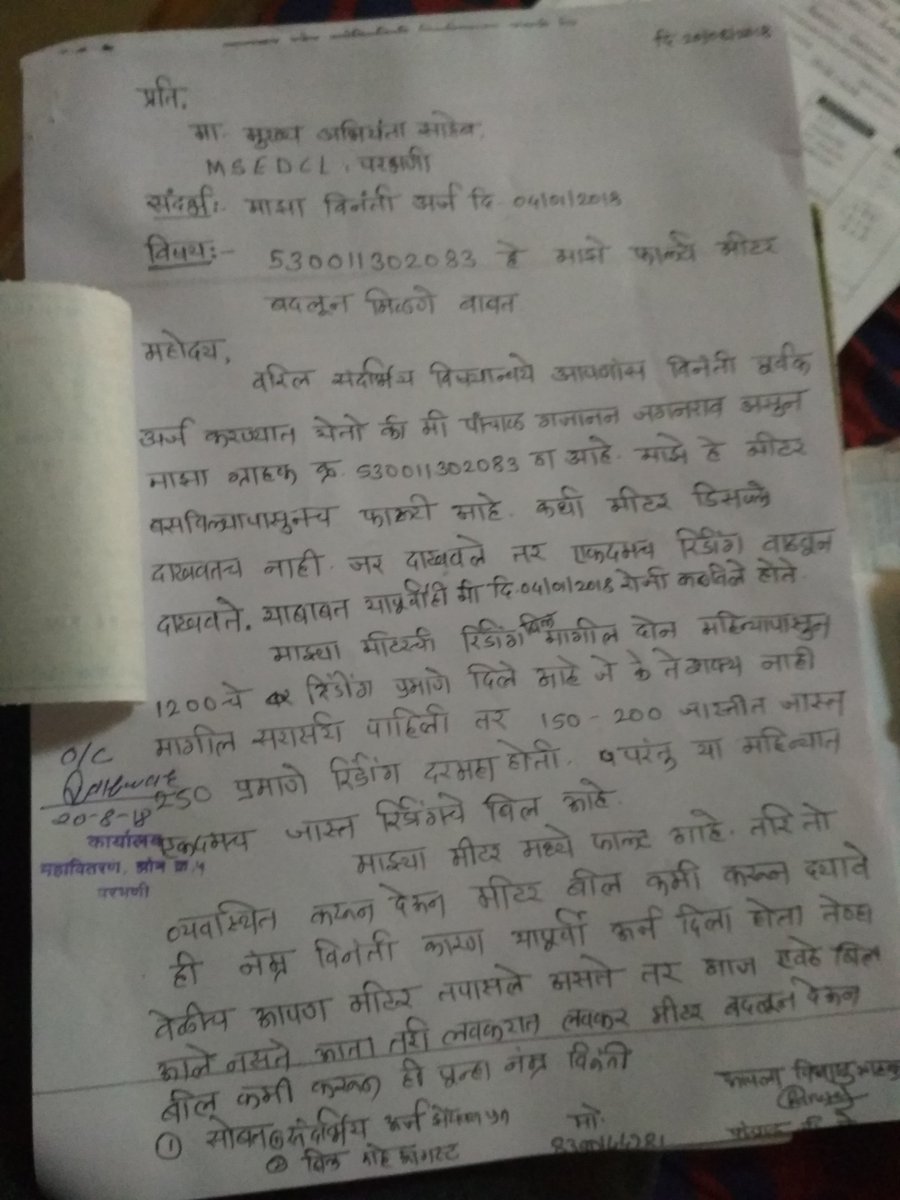 दि 20/08/2018
प्रति,
मा. मुख्य अभियंता साहेब,
MSEDCL, परभणी
संदर्भ:- माझा विनंती अर्ज दि 04/01/2018
विषय:- 530011302083 हे माझे फाल्टी मीटर
बदलून मिळणे बाबत
महोदय,
वरिल संदर्भिय विषयान्वये आपणांस विनंती पूर्वक
अर्ज करण्यात येतो की मी पांचाळ गजानन जगनराव असुन
माझा ग्राहक क्र. 530011302083 हा आहे. माझे हे मीटर
बसविल्यापासुनच फाल्टी आहे. कधी मीटर डिसप्ले
दाखवतच नाही. जर दाखवले तर एकदमच रिडींग वाढवून
दाखवते. याबाबत यापूर्वीही मी दि.04/01/2018 रोजी कळविले होते.
माझ्या मीटरची रिडींग बिल मागील दोन महिन्यापासुन
1200 चे रिडींग प्रमाणे दिले आहे जे के ते शक्य नाही
मागील सरासरी पाहिली तर 150-200 जास्तीत जास्त
250 प्रमाणे रिडींग दरमहा होती. परंतु या महिन्यात
एकदमच जास्त रिडींगचे बिल आहे.
O/C
20-8-18
कार्यालय
महावितरण, झोन क्र.
परभणी
माझ्या मीटर मध्ये फाल्ट आहे. तरि तो
व्यवस्थित करून देऊन मीटर बील कमी करून द्यावे
ही नम्र विनंती कारण यापूर्वी अर्ज दिला होता तेव्हा
वेळीच आपण मीटर तपासले असते तर आज एवढे बिल
आले नसते. आता तरी लवकरात लवकर मीटर बदलून देऊन
बील कमी करून ही पुन्हा नम्र विनंती
① सोबत संदर्भिय अर्ज
② बिल माहे ऑगस्ट
मो.
आपला विश्वासु